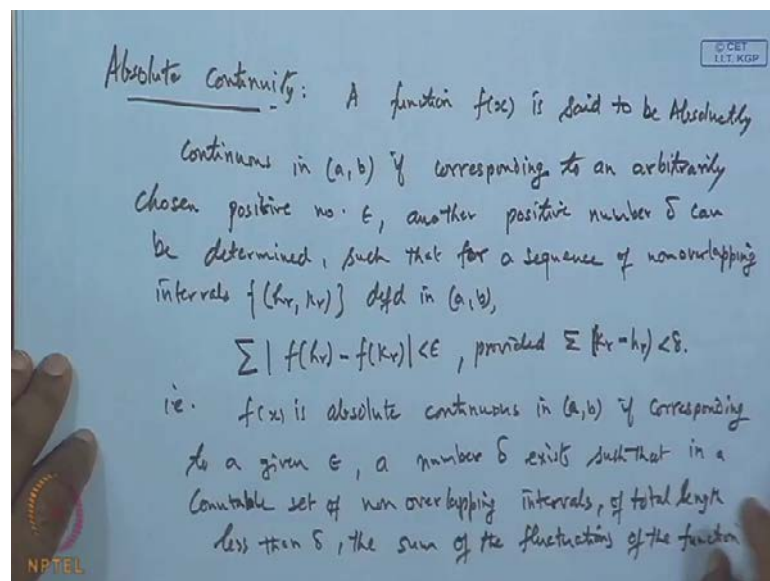 © CET
I.I.T. KGP
Absolute Continuity: A function f(x) is said to be Absolutly
Continuous in (a,b) if corresponding to an arbitrarily
chosen positive no. ε, another positive number δ can
be determined, such that for a sequence of nonoverlapping
intervals {(hr, kr)} defd in (a,b),
∑ | f(hr) - f(kr)| < ε, provided ∑ (kr - hr) < δ.
ie. f(x) is absolute continuous in (a,b) if corresponding
to a given ε, a number δ exists such that in a
Countable set of non overlapping intervals, of total length
less than δ, the sum of the fluctuations of the function
NPTEL